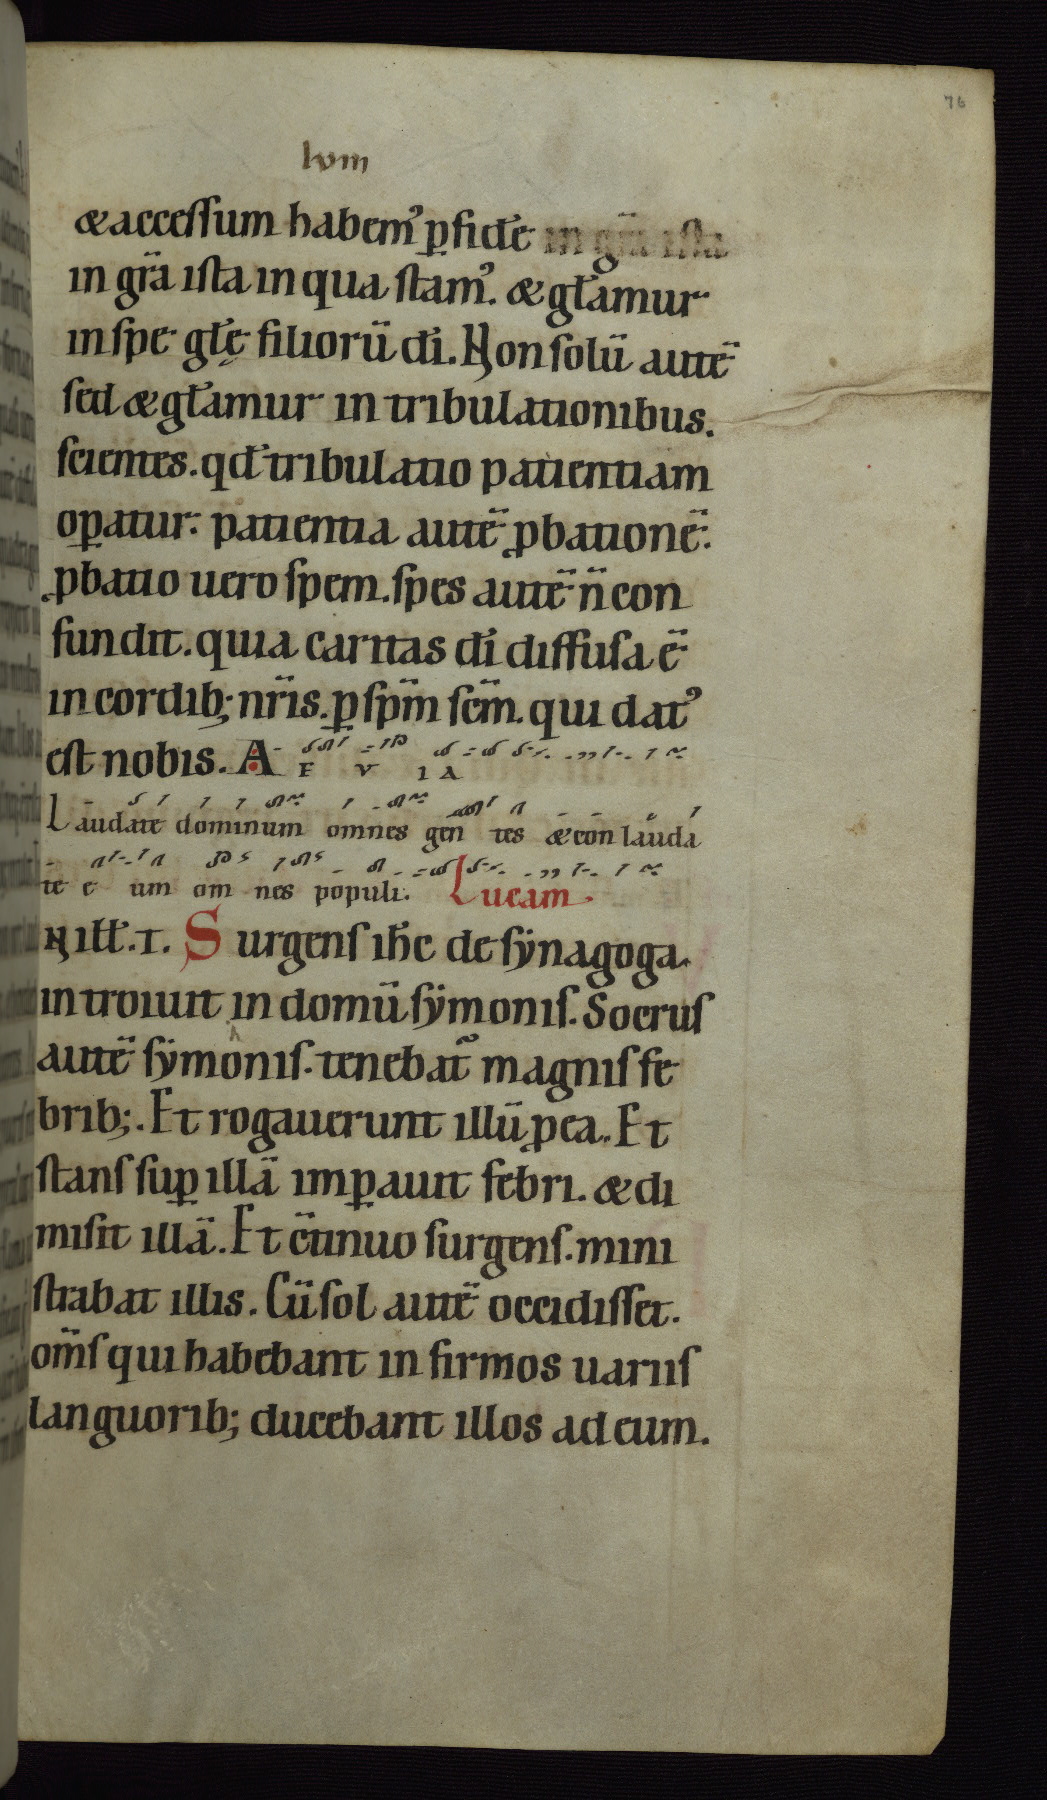 76
lvın
&accessum habem᾽ ꝑfidē in gr̄a ista
in gr̄a ista in qua stam᾽. & gl̄amur
in spe gl̄ę filiorū dī. Non solū autē
sed & gl̄amur in tribulationibus.
scientes. qd̄ tribulatio patientiam
oꝑatur. patientia autē ꝓbationē.
ꝓbatio uero spem. spes autē n̄ con
fundit. quia caritas dī diffusa ē
in cordib; nr̄is. ꝑ sp̄m sc̄m. qui dat᾽
est nobis. A E V I A
Laudate dominum omnes gen tes & con lauda
te e um om nes populi. Lucam
N ill̄. T. Surgens ih̄c de synagoga.
introiuit in domū symonis. Socrus
autē symonis. tenebat᷑ magnis fe
brib;. Et rogauerunt illū ꝓ ea. Et
stans suꝑ illā imꝑauit febri. & di
misit illā. Et c̄tinuo surgens. mini
strabat illis. Cū sol autē occidisset.
om̄s qui habebant in firmos uariis
languorib; ducebant illos ad eum.